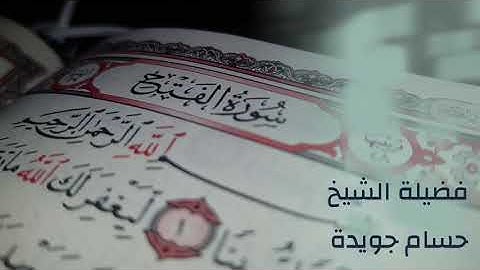 سُورَةُ الفَتْحِ
اللَّهِ الرَّحْمَٰنِ الرَّحِيمِ
١ لِيَغْفِرَ لَكَ اللَّهُ
فضيلة الشيخ
حسام جويدة